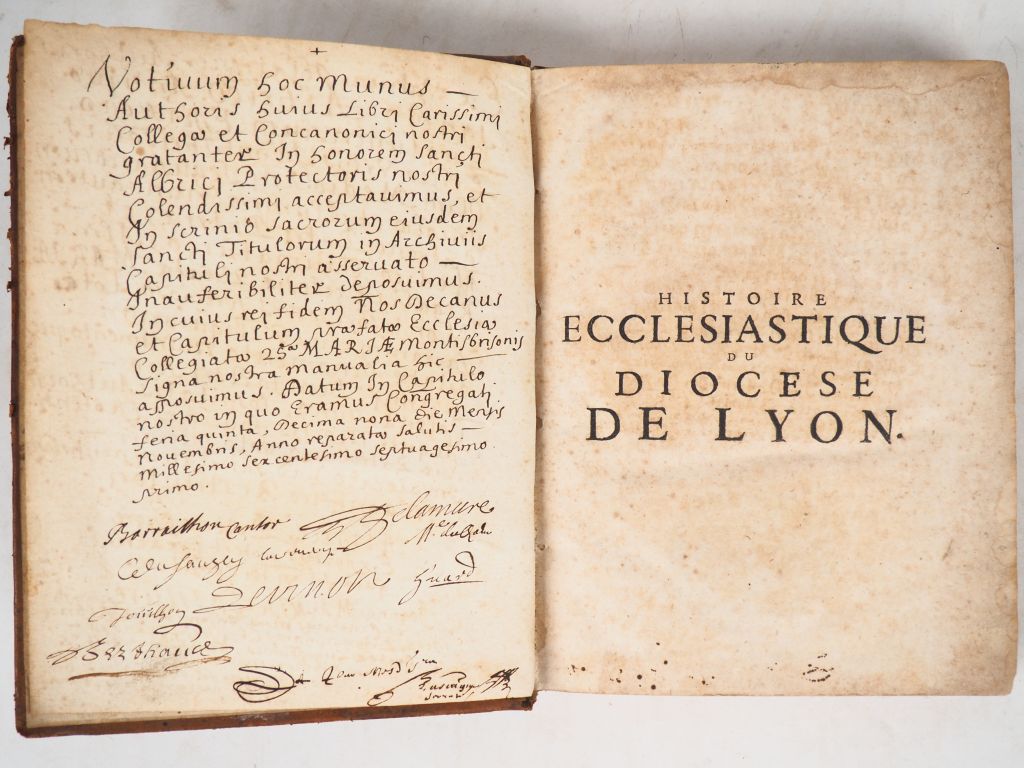 +
Votiuum hoc Munus —
Authoris huius Libri Carissimi
Collegæ et Concanonici nostri
gratanter In honorem Sancti
Albrici Protectoris nostri
Colendissimi acceptauimus, et
In scrinio sacrorum eiusdem
Sancti Titulorum in Archiuiis
Capituli nostri asseruato —
Inauferibiliter deposuimus.
In cuius rei fidem Nos Decanus
et Capitulum præfatæ Ecclesiæ
Collegiatæ MARIÆ Montisbrisonis
signa nostra manualia hic —
apposuimus. Datum In Capitulo
nostro in quo Eramus Congregati
feria quinta, Decima nona Die Mensis
Novembris, Anno reparatæ salutis —
Millesimo sexcentesimo septuagesimo
primo.
Barrailhon Cantor Delamure
Huard
HISTOIRE
ECCLESIASTIQUE
DU
DIOCESE
DE LYON.